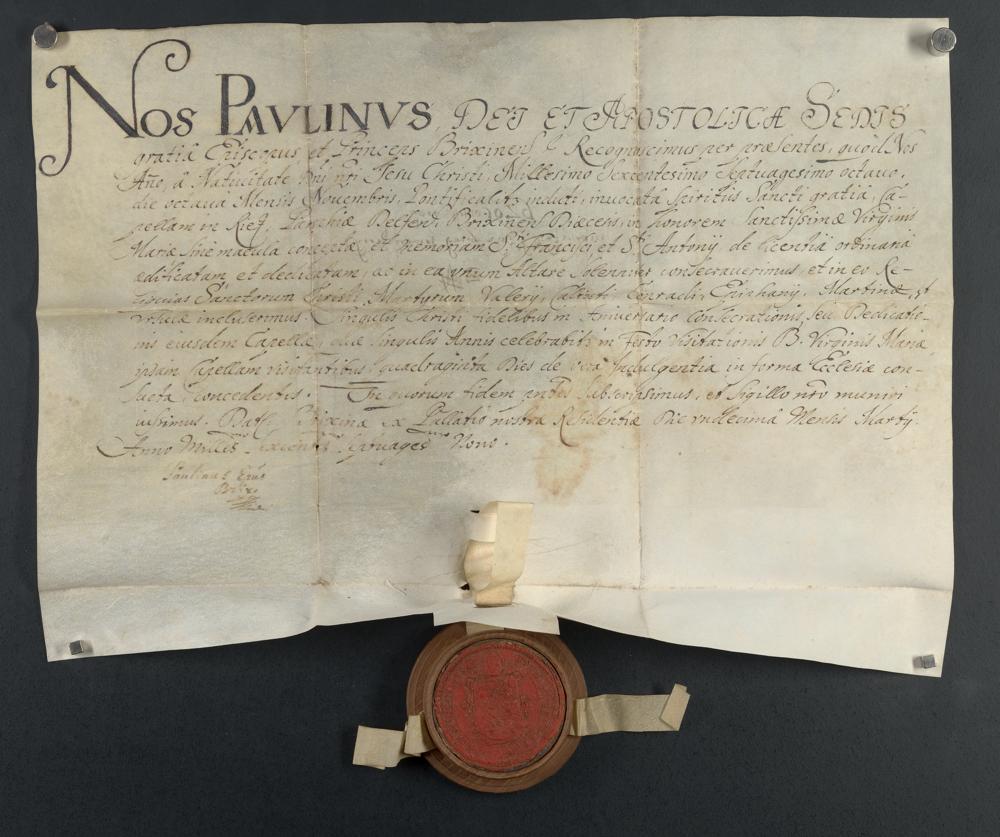 NOS PAVLINVS DEI ET APOSTOLICÆ SEDIS
gratiâ Episcopus et Princeps Brixinens. Recognoscimus per præsentes, quod Nos
Año, â Natiuitate Dni nri Jesu Christi, Millesimo Sexcentesimo Septuagesimo octauo,
die octaua Mensis Novembris, Pontificalib9 induti, inuocata Spiritus Sancti gratiâ, Ca-
pellam in Rief, Parochiæ Brixinens Diœcesis, in honorem Sanctissimæ Virginis
Mariæ sine macula conceptæ et memoriam S. Francisci et S. Antonij de licentiâ ordinariâ
ædificatam et dedicatam, ac in ea vnum Altare solenniter consecrauerimus, et in eo Re-
liquias Sanctorum Christi Martyrum Valerij, Conradi, Epiphanij, Martinæ, et
Vrsulæ incluserimus. Singulis Christi fidelibus in Aniuersario Consecrationis seu Dedicatio-
nis eiusdem Capellæ, quæ singulis Annis celebrabitr in Festo Visitationis B. Virginis Mariæ
ipsam Capellam visitantibus, quadraginta Dies de vera Indulgentia in forma Ecclesiæ con-
sueta concedentes. In quorum fidem pntes subscripsimus, et Sigillo nro muniri
iussimus. Dat. Brixinæ ex Pallatio nostræ Residentiæ Die vndecima Mensis Martij.
Anno Milles Sexcent Septuages Nono.
Paulinus Epus
Brix.